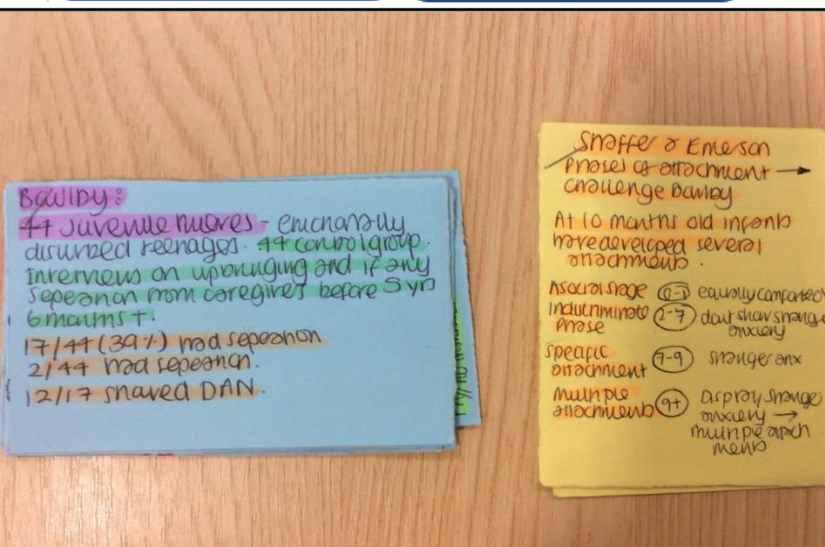 Bowlby:
44 Juvenile thieves - emotionally
disturbed teenages. 44 control group.
Interviews on upbringing and if any
Seperation from caregivers before 5 yrs
6 months +.
17/44 (39%) had seperation
2/44 had seperation.
12/17 showed DAN.
Shaffer & Emerson
Phases of attachment →
challenge Bowlby
At 10 months old infants
have developed several
attachments.
Asocial stage equally comforted
Indiscriminate Phase 2-7 dont show strange anxiety
Specific attachment 7-9 stranger anx
Multiple attachments 9+ Display strange
anxiety →
multiple attach
ments